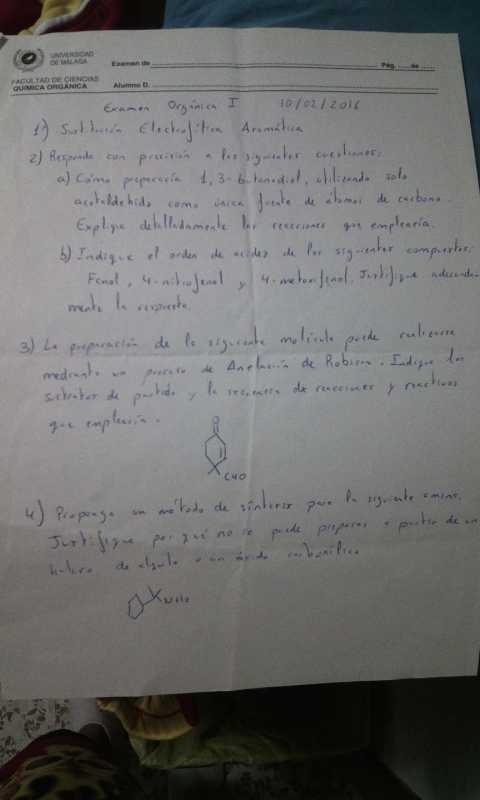 UNIVERSIDAD
DE MÁLAGA
Examen de
Pág. de
FACULTAD DE CIENCIAS
QUÍMICA ORGÁNICA
Alumno D.
Examen Orgánica I 10/02/2016
1) Sustitución Electrofílica Aromática
2) Responda con precisión a las siguientes cuestiones:
a) Cómo prepararía 1,3-butanodiol, utilizando solo
acetaldehido como única fuente de átomos de carbono.
Explique detalladamente las reacciones que emplearía.
b) Indique el orden de acidez de los siguientes compuestos:
Fenol, 4-nitrofenol y 4-metoxifenol. Justifique adecuada-
mente la respuesta.
3) La preparación de la siguiente molécula puede realizarse
mediante un proceso de Anelación de Robison. Indique los
sustratos de partida y la secuencia de reacciones y reactivos
que emplearía.
O
CHO
4) Proponga un método de síntesis para la siguiente amina.
Justifique por qué no se puede preparar a partir de un
haluro de alquilo o un ácido carboxílico